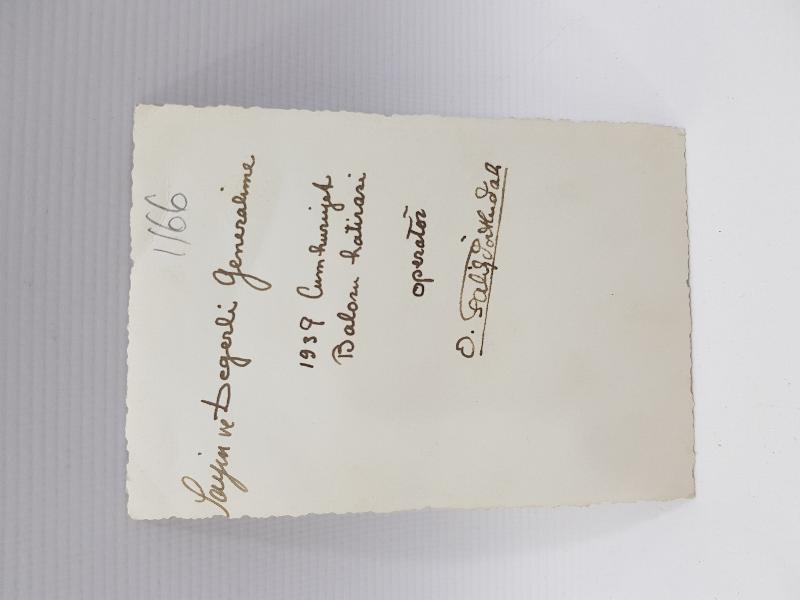 1166
Sayın ve Degerli Generalime
1939 Cumhuriyet
Balosu hatirasi
operatör
D. Salih